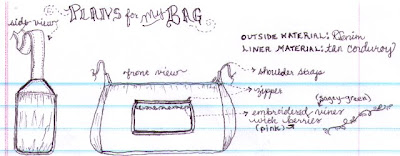 PLANS for my BAG
side view
OUTSIDE MATERIAL: Denim
LINER MATERIAL: tan corduroy
front view
shoulder straps
zipper
(gagey-green)
embroidered vines
with berries
(pink)